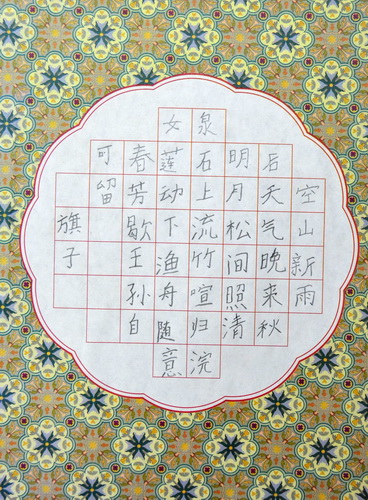 空山新雨
后天气晚来秋
明月松间照清
泉石上流竹喧归浣
女莲动下渔舟随意
春芳歇王孙自
可留
旗子